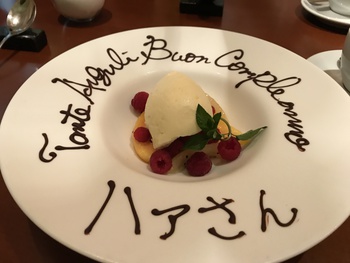 Tanti Auguri Buon Compleanno
ハアさん